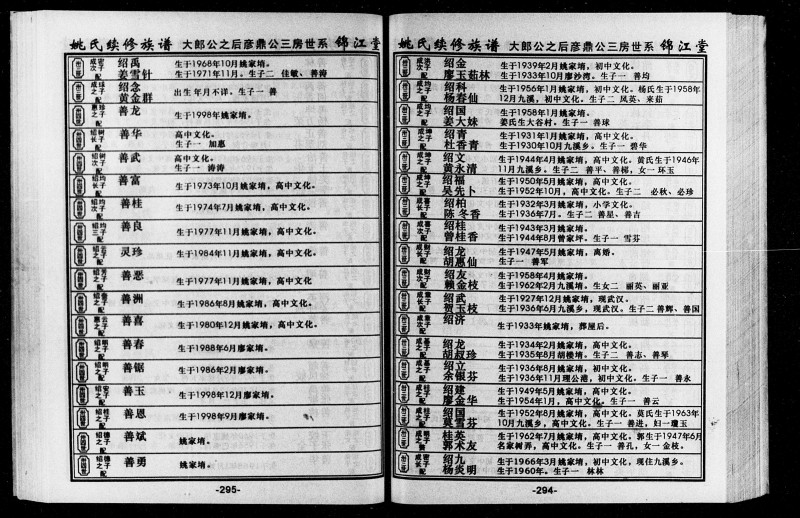 姚氏续修族谱 大郎公之后彦鼎公三房世系 锦江堂
成密次子 绍禹 生于1968年10月姚家堉。
配 姜雪针 生于1971年11月。生子二 佳敏、善涛
绍念 出生年月不详。生子一 善
配 黄金群
善龙 生于1998年姚家堉。
配
绍树长子 善华 高中文化。
配 生子一 加惠
绍树次子 善武 高中文化。
配 生子一 涛涛
绍均长子 善富 生于1973年10月姚家堉,高中文化。
配
善桂 生于1974年7月姚家堉,高中文化。
配
绍均三子 善良 生于1977年11月姚家堉,高中文化。
配
灵珍 生于1984年11月姚家堉,高中文化。
配
善恶 生于1977年11月姚家堉,高中文化
配
善洲 生于1986年8月姚家堉,高中文化。
配
善喜 生于1980年12月姚家堉,高中文化。
配
善春 生于1988年6月廖家堉。
配
善锯 生于1986年2月廖家堉。
配
善玉 生于1998年12月廖家堉。
配
善恩 生于1998年9月廖家堉。
配
善斌 姚家堉。
配
善勇 姚家堉。
配
-295-
姚氏续修族谱 大郎公之后彦鼎公三房世系 锦江堂
次子 绍金 生于1939年2月姚家堉,初中文化。
配 廖玉茹林 生于1933年10月廖沙湾。生子一 善均
成均之子 绍科 生于1956年1月姚家堉,初中文化。杨氏生于1958年
配 杨春仙 12月九溪,初中文化。生子二 凤英、来茹
成均之子 绍国 生于1958年1月姚家堉。
配 姜大妹 姜氏生大谷村。生子一 善球
成坤之子 绍青 生于1931年1月姚家堉,高中文化。
配 杜香青 生于1930年10月九溪乡。生子一 碧华
成坤之子 绍文 生于1944年4月姚家堉,高中文化。黄氏生于1946年
配 黄永清 11月九溪乡。生子二 善平、善梯,女一 环玉
成坤之子 绍福 生于1950年5月姚家堉,高中文化。
配 吴先卜 生于1952年10月,高中文化。生子二 必秋、必珍
成喜长子 绍柏 生于1932年3月姚家堉,小学文化。
配 陈冬香 生于1936年7月。生子二 善星、善吉
成喜次子 绍桂 生于1943年3月姚家堉。
配 曾桂香 生于1944年8月曾家坪。生子一 雪芬
成财长子 绍龙 生于1947年5月姚家堉,离婚。
配 胡惠仙 生子一 善军
成财次子 绍友 生于1958年4月姚家堉。
配 赖金枝 生于1962年2月九溪堉。生女二 丽英、丽亚
成章长子 绍武 生于1927年12月姚家堉,现武汉。
配 贺玉枝 生于1936年6月九溪乡,现武汉。生子二 善辉、善国
成章次子 绍济 生于1933年姚家堉,葬屋后。
配
成基之子 绍龙 生于1934年2月姚家堉,高中文化。
配 胡叔珍 生于1935年8月胡楼堉。生子二 善志、善琴
成基之子 绍立 生于1936年8月姚家堉,初中文化。
配 余银芬 生于1936年11月理公港,初中文化。生子一 善永
成桂之子 绍建 生于1949年5月姚家堉,高中文化。
配 廖金华 生于1954年1月,高中文化。生子一 善云
成桂之子 绍国 生于1952年8月姚家堉,高中文化。莫氏生于1963年
配 莫雪芬 10月九溪乡,高中文化。生子一 善进,妇一 瓊玉
桂英 生于1962年7月姚家堉,高中文化。郭生于1947年6月
郭术友 名家树弄,高中文化。生子一 善孔,女一 金枝。
成密长子 绍九 生于1966年3月姚家堉,初中文化,现住九溪乡。
配 杨炎明 生于1960年。生子一 林林
-294-